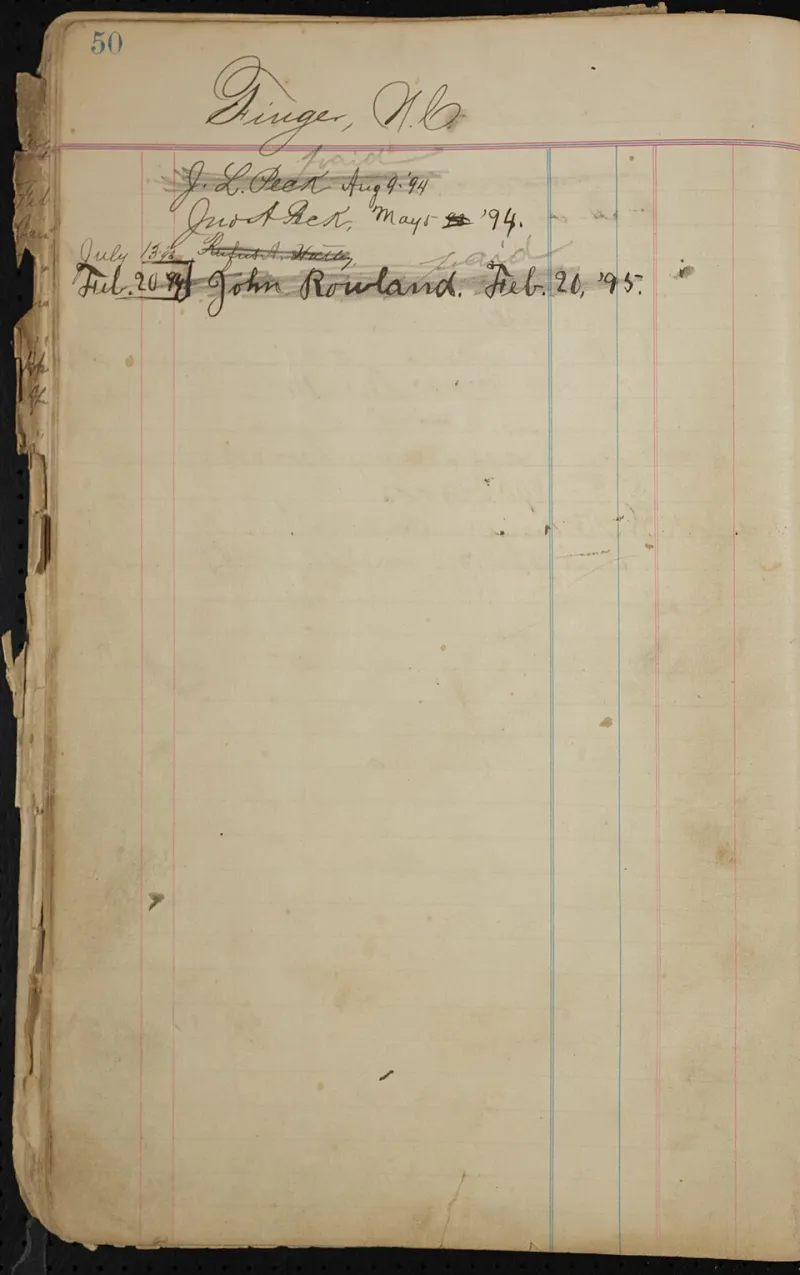 50
Finger, N.C.
paid
J. L. Peck Aug 9 '94
Jno A Peck, May 5 '94.
July 13
paid
Feb. 20 94 John Rowland. Feb. 20, '95.